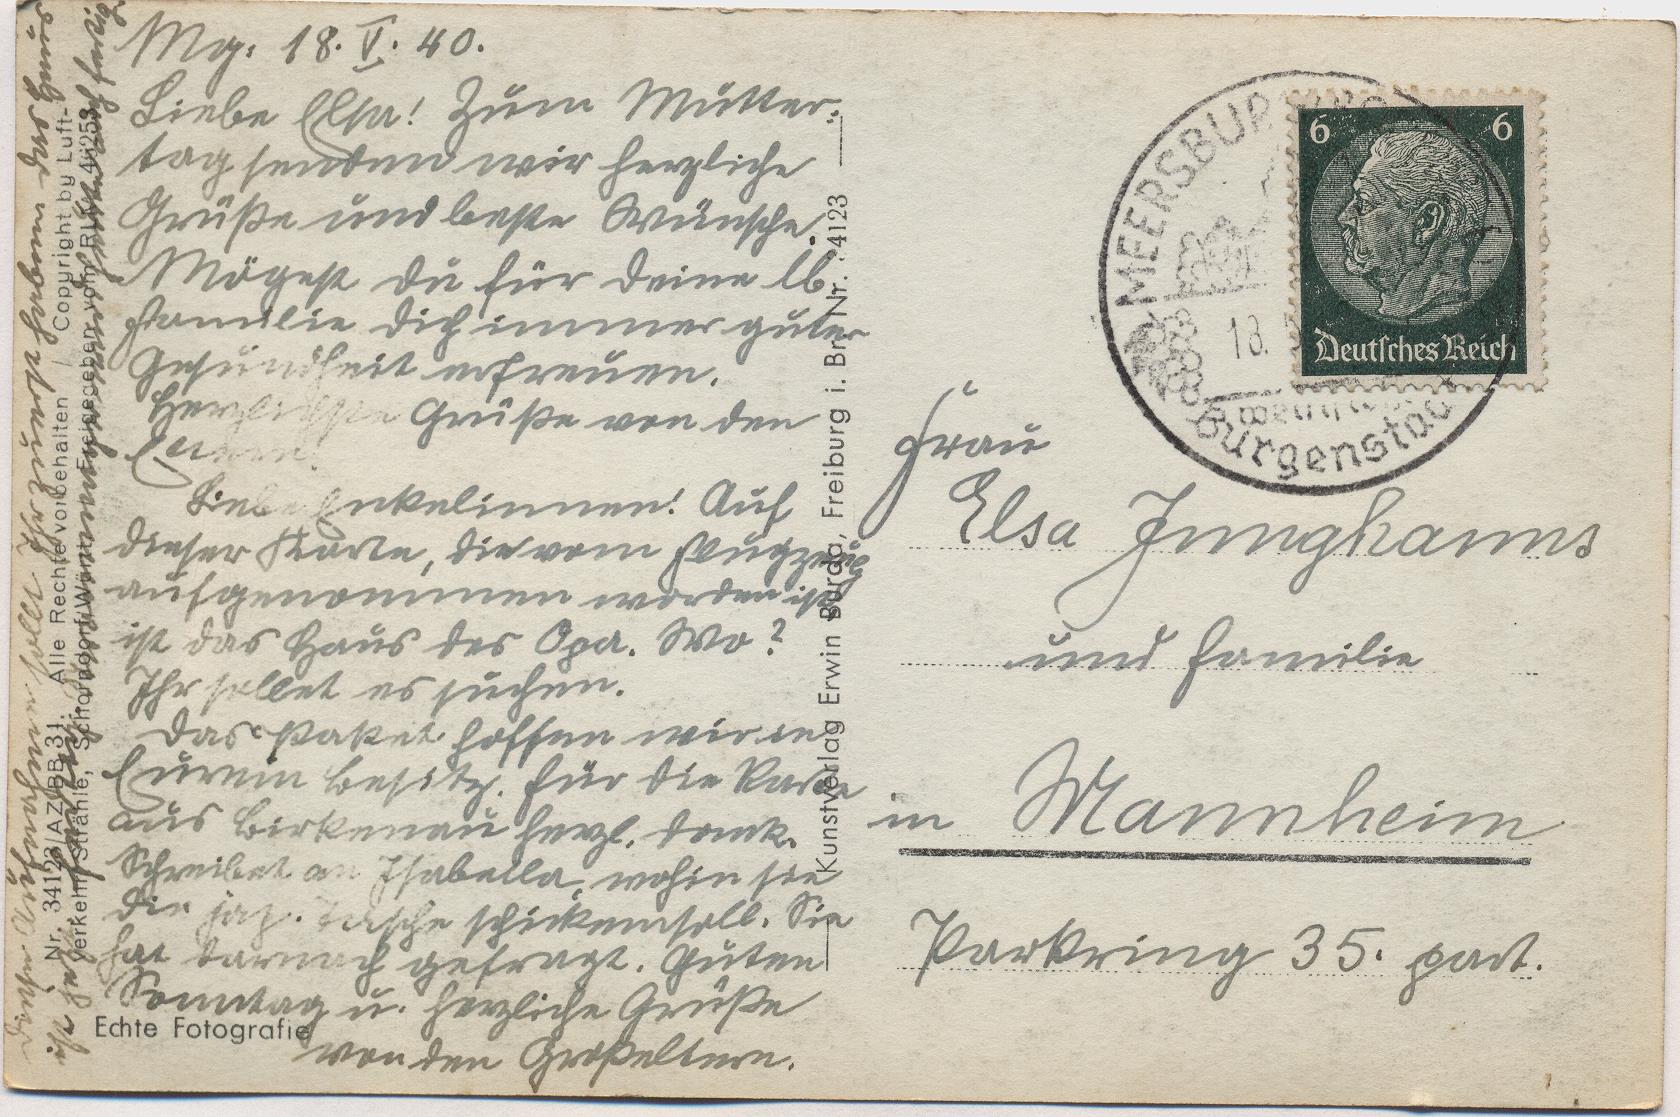 Mg. 18. V. 40.
Liebe Elsa! Zum Mutter-
tag senden wir herzliche
Grüße und beste Wünsche.
Mögest du für deine lb.
Familie dich immer guter
Gesundheit erfreuen.
Herzlichste Grüße von den
Euern.
Liebe Enkelinnen! Auf
dieser Karte, die vom Flugzeug
aufgenommen worden ist,
ist das Haus des Opa. Wo?
Ihr sollet es suchen.
Das Paket hoffen wir in
Eurem Besitz. Für die Karte
aus Birkenau herzl. Dank.
Schreibet an Isabella, wohin sie
die Tasche schicken soll. Sie
hat darnach gefragt. Guten
Sonntag u. herzliche Grüße
von den Großeltern.
Diese Aufnahme sollt Ihr zuerst haben das Haus
ist
Nr. 34123 AZ/BB 31. Alle Rechte vorbehalten / Copyright by Luft-
verkehr Strähle, Schorndorf/Württ. Freigegeben vom RLM
Echte Fotografie
Kunstverlag Erwin Burda, Freiburg i. Br. Nr. 34123
MEERSBURG
18. 5
Burgenstadt
6 6
Deutsches Reich
Frau
Elsa Junghanns
und Familie
in Mannheim
Parkring 35. part.